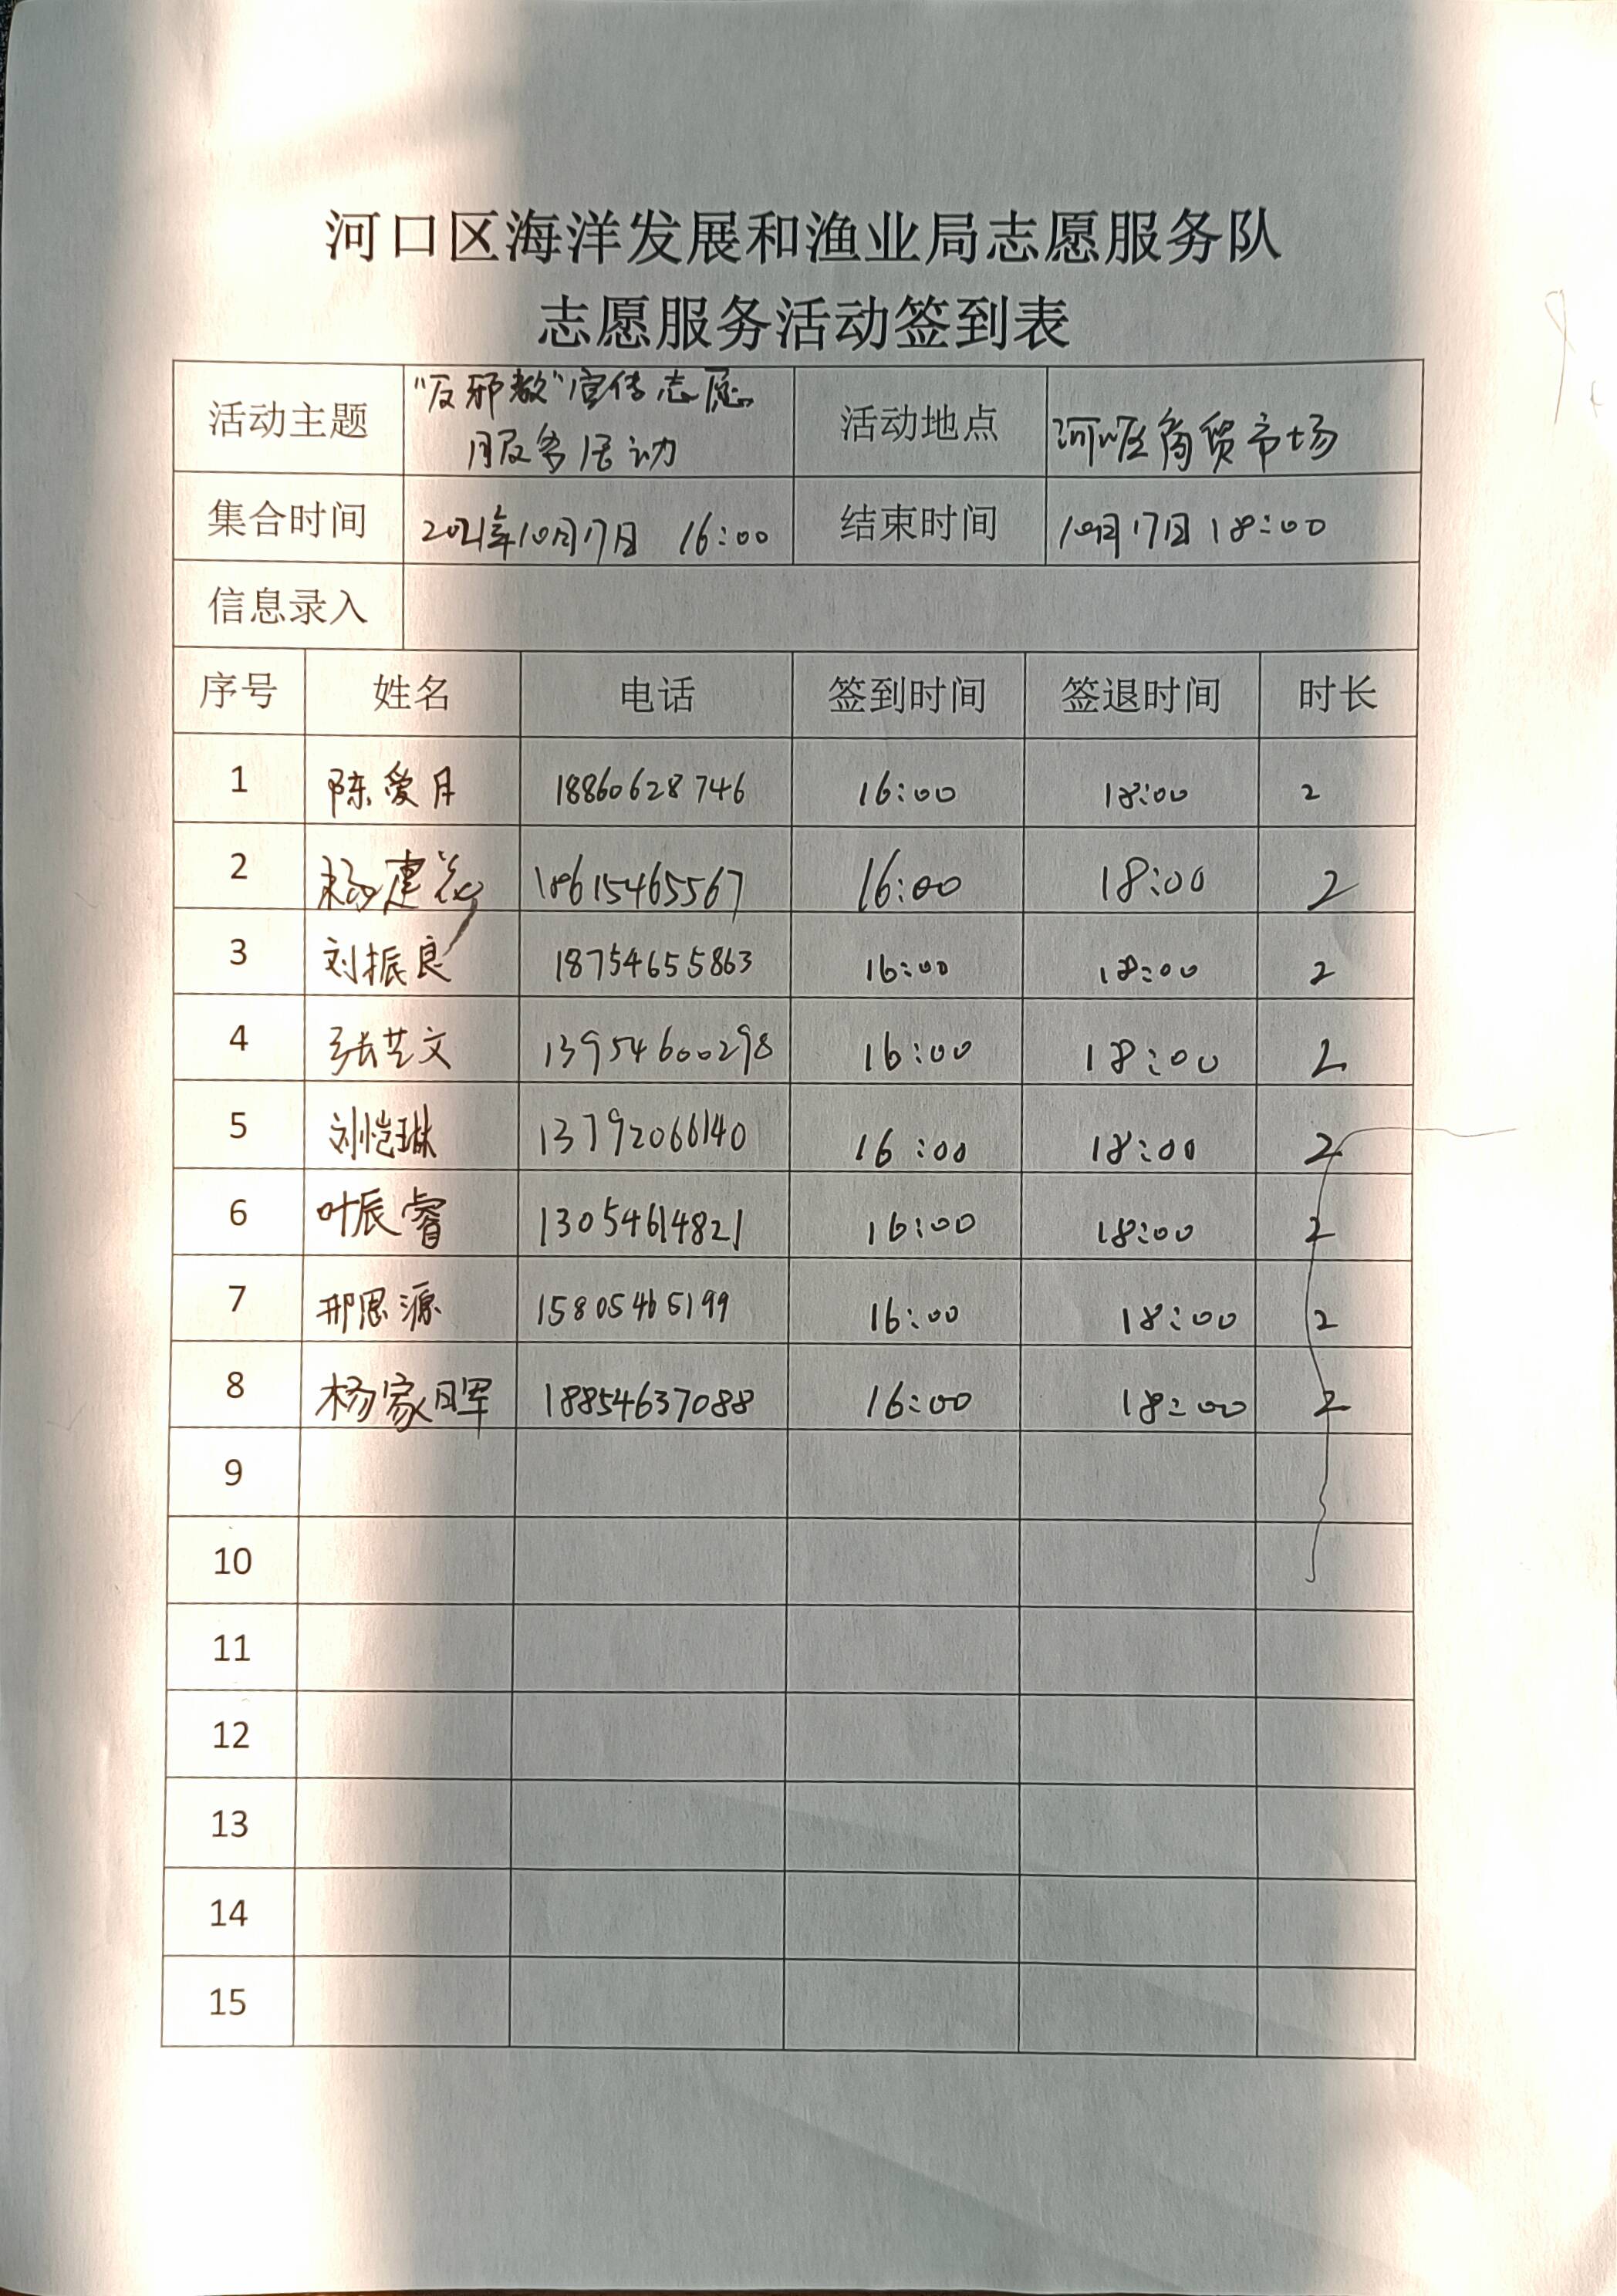 河口区海洋发展和渔业局志愿服务队
志愿服务活动签到表
活动主题 “反邪教”宣传志愿服务活动 活动地点 河口区商贸市场
集合时间 2021年10月17日 16:00 结束时间 10月17日 18:00
信息录入
序号 姓名 电话 签到时间 签退时间 时长
1 陈爱月 18860628746 16:00 18:00 2
2 杨建花 18615465567 16:00 18:00 2
3 刘振良 18754655863 16:00 18:00 2
4 张艺文 13954600298 16:00 18:00 2
5 刘恺琳 13792066140 16:00 18:00 2
6 叶辰睿 13054614821 16:00 18:00 2
7 邢思源 15805465199 16:00 18:00 2
8 杨家晖 18854637088 16:00 18:00 2
9
10
11
12
13
14
15